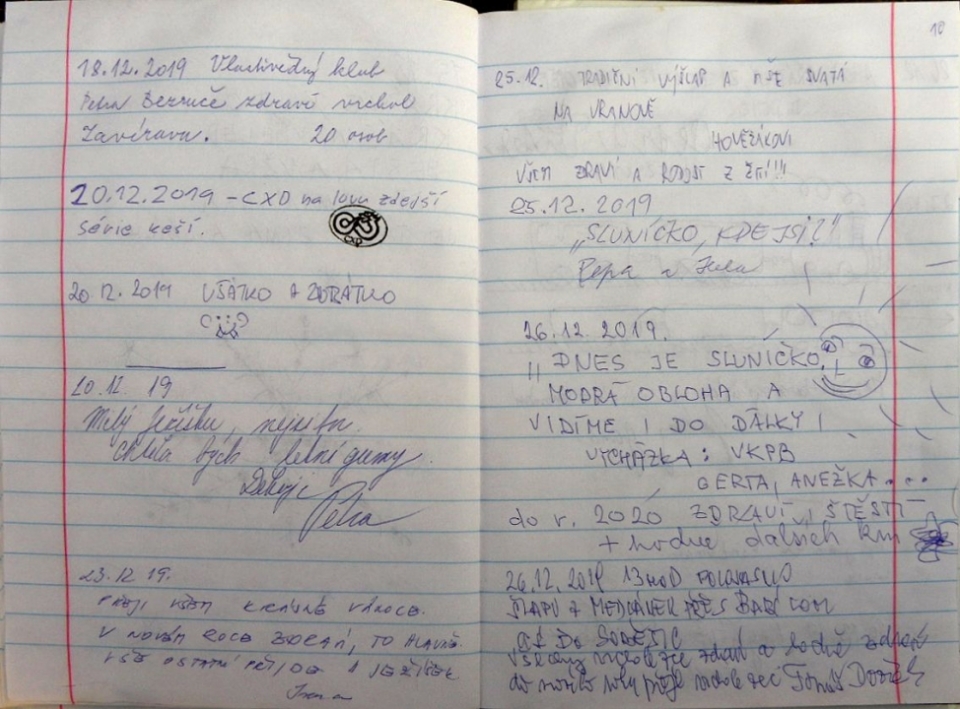 18.12.2019 Vlastivědný klub
Petra Bezruče zdraví vrchol
Zavíravu. 20 osob
20.12.2019 - CXD na lovu zdejší
série keší.
20.12.2019 UŠÁTKO A ZDRÁTKO
20.12 19
Milý Ježíšku,
chtěla bych letní gumy.
Děkuji
Petra
23.12 19.
PŘEJI VŠEM KRÁSNÉ VÁNOCE.
V NOVÉM ROCE ZDRAVÍ, TO HLAVNĚ.
VŠE OSTATNÍ A JEŽÍŠEK
10
25.12. TRADIČNÍ VÝŠLAP A MŠE SVATÁ
NA VRANOVĚ
HOVĚZÁKOVI
VŠEM ZDRAVÍ A RADOST Z ŽITÍ!!!
25.12.2019
„SLUNÍČKO, KDE JSI?"
Pepa a
26.12.2019.
„DNES JE SLUNÍČKO,
MODRÁ OBLOHA A
VIDÍME I DO DÁLKY!
VYCHÁZKA: VKPB
GERTA, ANEŽKA...
do r. 2020 ZDRAVÍ, ŠTĚSTÍ
+ hodně dalších km
26.12.2019 13 HOD POLOJASNO
MEDLÁNEK PŘES BABÍ LOM
AŽ DO
Všechny zdraví a hodně zdraví
do nového roku přeje Tomáš